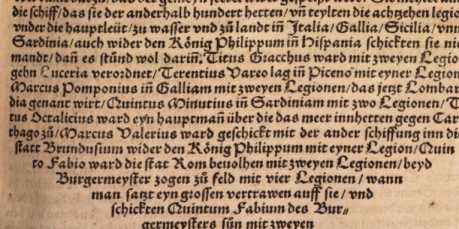 die schiff/das sie der anderhalb hundert hetten/vñ teylten die achtzehen legio
vnder die hauptleüt/zu wasser vnd zů landt in Italia/Gallia/Sicilia/vnn
Sardinia/auch wider den König Philippum in Hispania schickten sie nie
mandt/dañ es stůnd wol darin; Titus Gracchus ward mit zweyen Legio
gehn Luceria verordnet/Terentius Varro lag in Piceno mit eyner Legion
Marcus Pomponius in Galliam mit zweyen Legionen/das jetzt Lombar
dia genant wirt/Quintus Minutius in Sardiniam mit zwo Legionen/T
tus Octalicius ward eyn hauptman über die das meer innhetten gegen Car
thago zů/Marcus Valerius ward geschickt mit der ander schiffung inn di
statt Brundusium wider den König Philippum mit eyner Legion/Quin
to Fabio ward die stat Rom beuolhen mit zweyen Legionen/beyd
Burgermeyster zogen zů feld mit vier Legionen/wann
man satzt eyn grossen vertrawen auff sie/vnd
schickten Quintum Fabium des Bur⸗
germeysters sůn mit zweyen